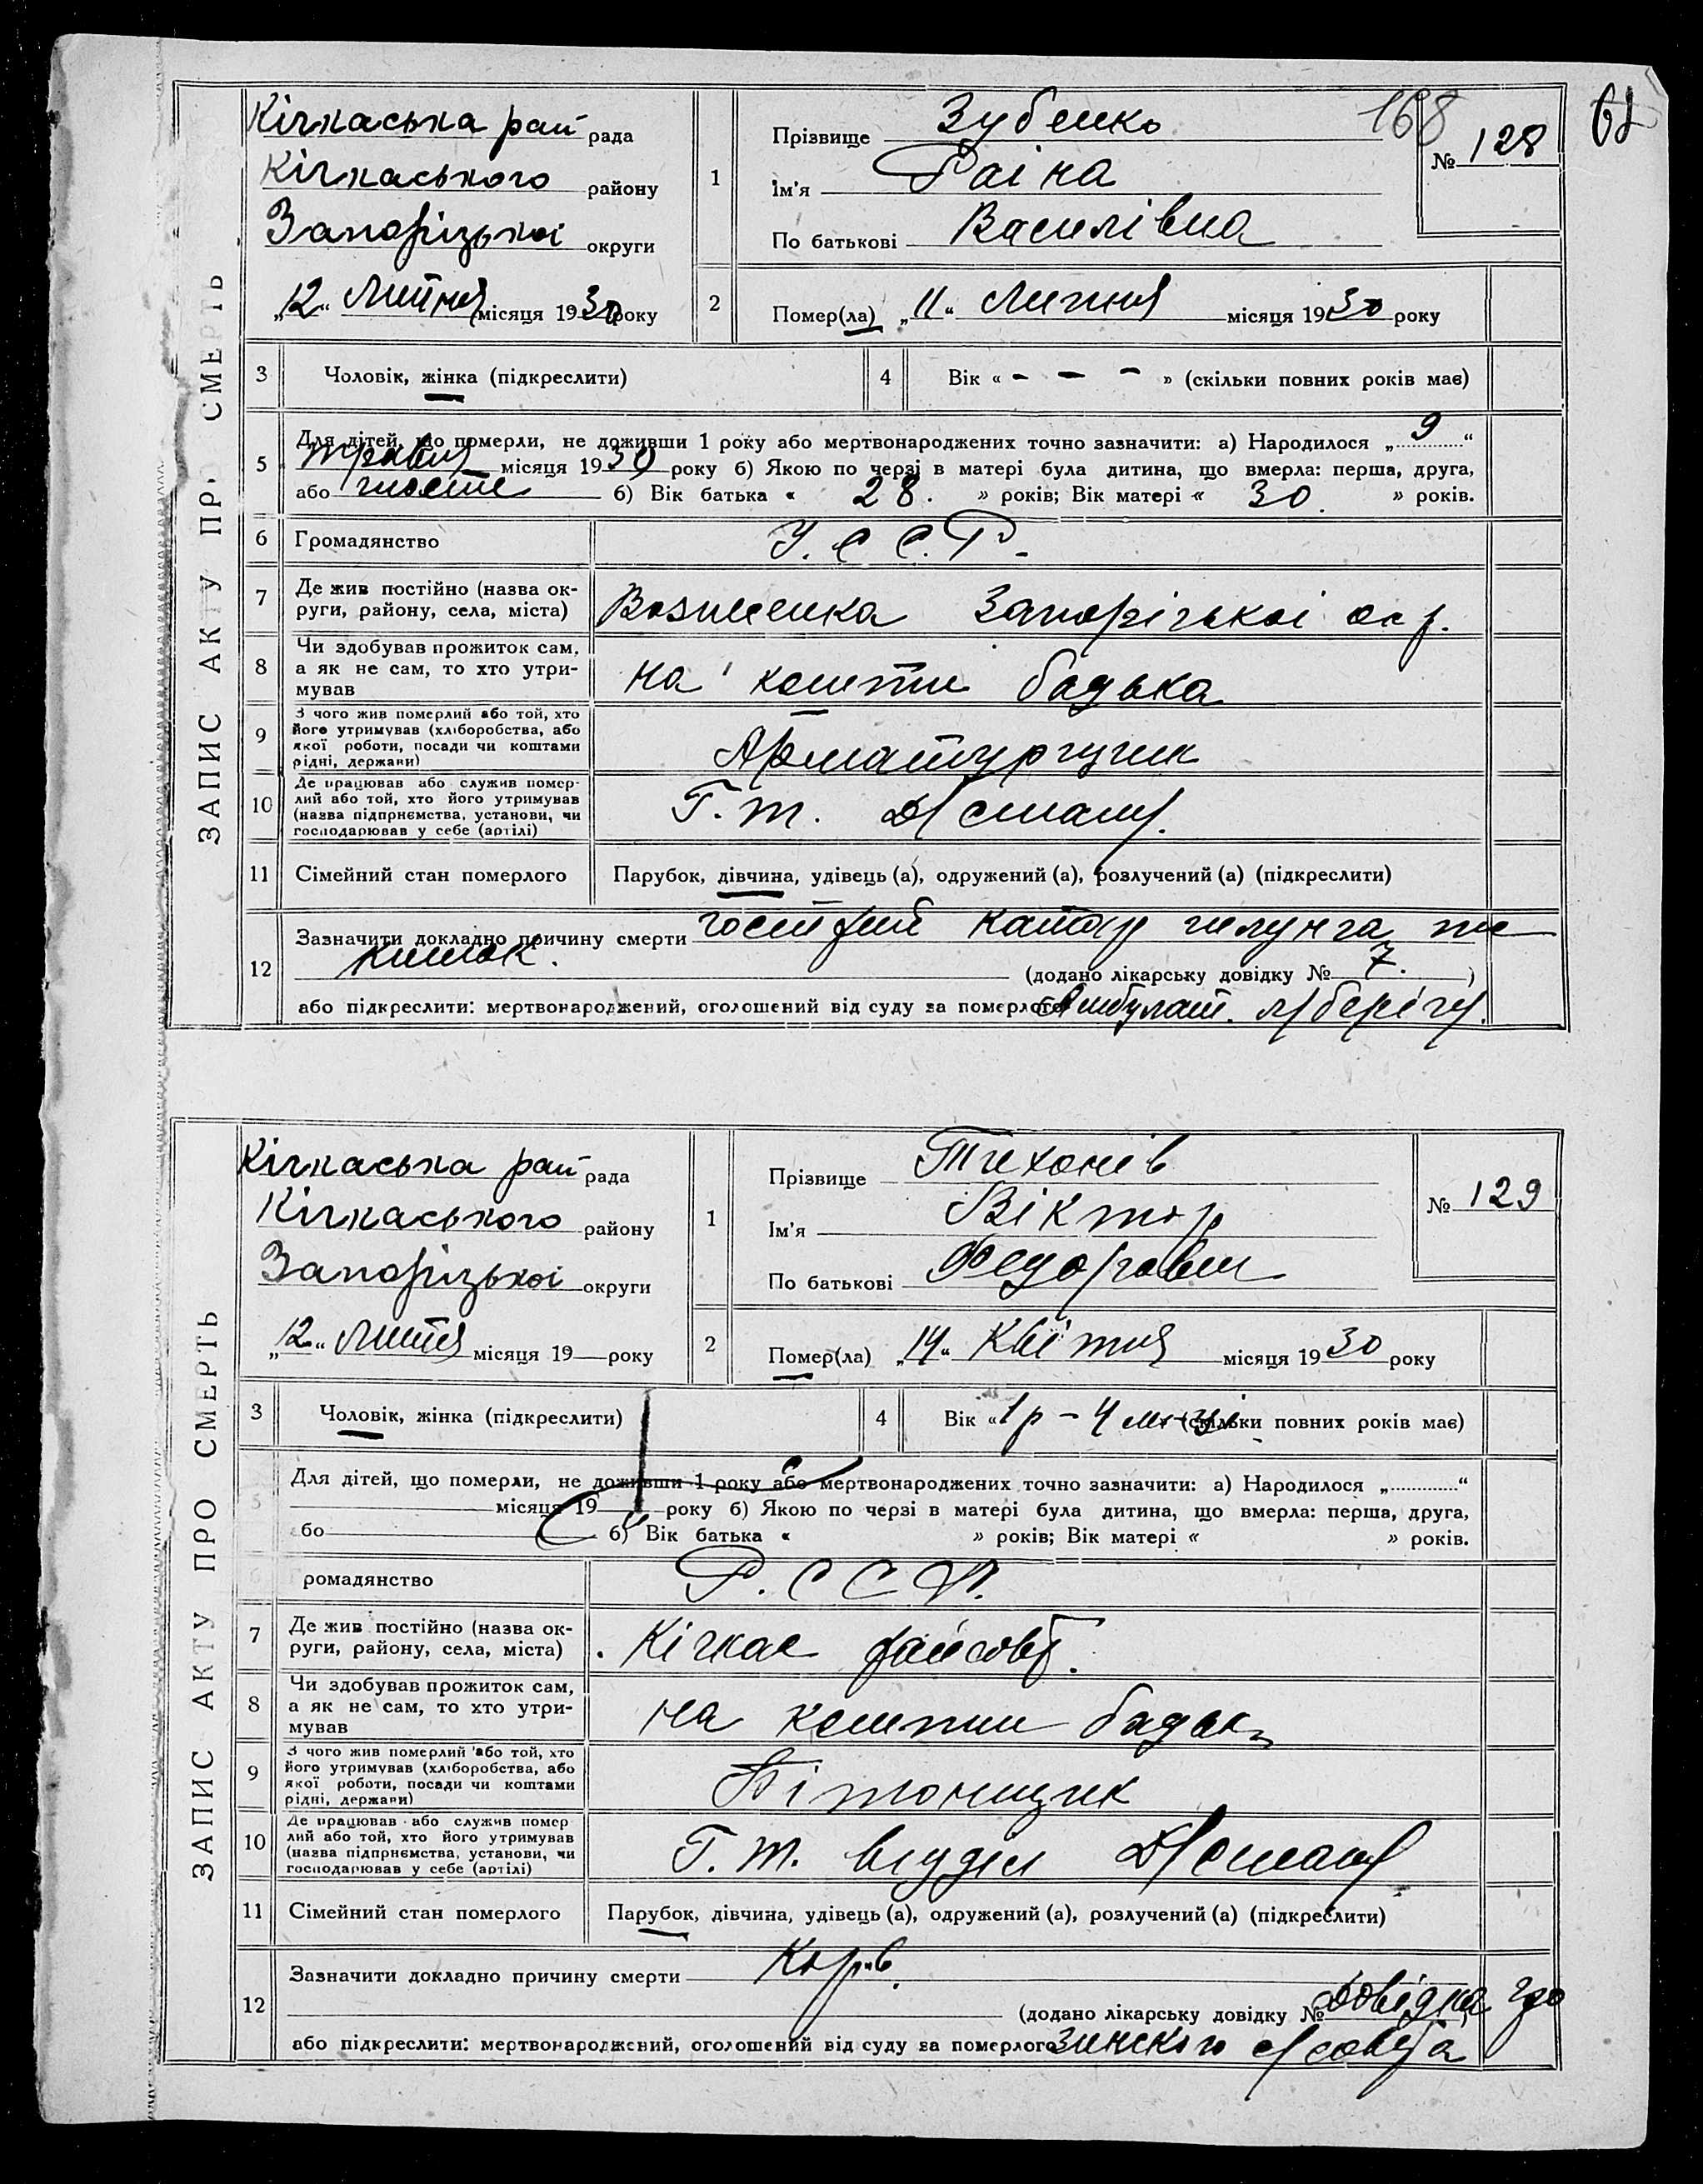 168
61
ЗАПИС АКТУ ПРО СМЕРТЬ
Кічкаська рай рада
Кічкаського району
Запорізької округи
„12“ Липня місяця 1930 року
1
Прізвище Зубенко
Ім'я Раіна
По батькові Василівна
№ 128
2
Помер(ла) „11“ Липня місяця 1930 року
3 Чоловік, жінка (підкреслити)
4 Вік « - - - » (скільки повних років має)
5
Для дітей, що померли, не доживши 1 року або мертвонароджених точно зазначити: а) Народилося „9“
травня місяця 1930 року б) Якою по черзі в матері була дитина, що вмерла: перша, друга,
або шосте б) Вік батька « 28. » років; Вік матері « 30. » років.
6 Громадянство У.С.С.Р.
7 Де жив постійно (назва ок-
руги, району, села, міста)
Вознесенка Запорізької окр.
8 Чи здобував прожиток сам,
а як не сам, то хто утри-
мував
на кошти батька
9 З чого жив померлий або той, хто
його утримував (хліборобства, або
якої роботи, посади чи коштами
рідні, держави)
Арматурщик
10 Де працював або служив помер-
лий або той, хто його утримував
(назва підприємства, установи, чи
господарював у себе (артілі)
Г.т.
11 Сімейний стан померлого Парубок, дівчина, удівець (а), одружений (а), розлучений (а) (підкреслити)
12
Зазначити докладно причину смерти гострий катар шлунка та
кишок.
(додано лікарську довідку № 7.)
або підкреслити: мертвонароджений, оголошений від суду за померлого Амбулат. п/берігу.
ЗАПИС АКТУ ПРО СМЕРТЬ
Кічкаська рай рада
Кічкаського району
Запорізької округи
„12“ Липня місяця 19 — року
1
Прізвище Тихонів
Ім'я Віктор
По батькові Федорович
№ 129
2
Помер(ла) „14“ Квітня місяця 1930 року
3 Чоловік, жінка (підкреслити)
4 Вік «1 р - 4 м-ці (скільки повних років має)
5
Для дітей, що померли, не доживши 1 року або мертвонароджених точно зазначити: а) Народилося „ “
місяця 19 року б) Якою по черзі в матері була дитина, що вмерла: перша, друга,
бо б) Вік батька « » років; Вік матері « » років.
6 ромадянство Р.С.С.Р.
7 Де жив постійно (назва ок-
руги, району, села, міста)
Кічкас
8 Чи здобував прожиток сам,
а як не сам, то хто утри-
мував
на кошти батька
9 З чого жив померлий або той, хто
його утримував (хліборобства, або
якої роботи, посади чи коштами
рідні, держави)
Бітонщик
10 Де працював або служив помер
лий або той, хто його утримував
(назва підприємства, установи, чи
господарював у себе (артілі)
Г.т. відділ
11 Сімейний стан померлого Парубок, дівчина, удівець (а), одружений (а), розлучений (а) (підкреслити)
12
Зазначити докладно причину смерти Корь.
(додано лікарську довідку № Довідка
або підкреслити: мертвонароджений, оголошений від суду за померлого зинского с/совета